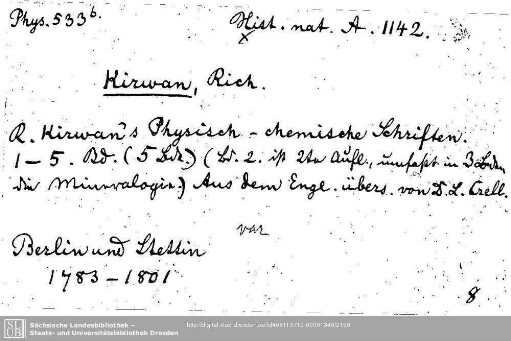 Phys. 533 b.
Hist. nat. A. 1142.
x
Kirwan, Rich.
R. Kirwan's Physisch-chemische Schriften.
1-5. Bd. (5 Bde.) (Bd. 2. ist 2te Aufl., umfaßt in 3 Bden
die Mineralogie.) Aus dem Engl. übers. von D. L. Crell.
var
Berlin und Stettin
1783-1801
8
SLUB
Sächsische Landesbibliothek –
Staats- und Universitätsbibliothek Dresden